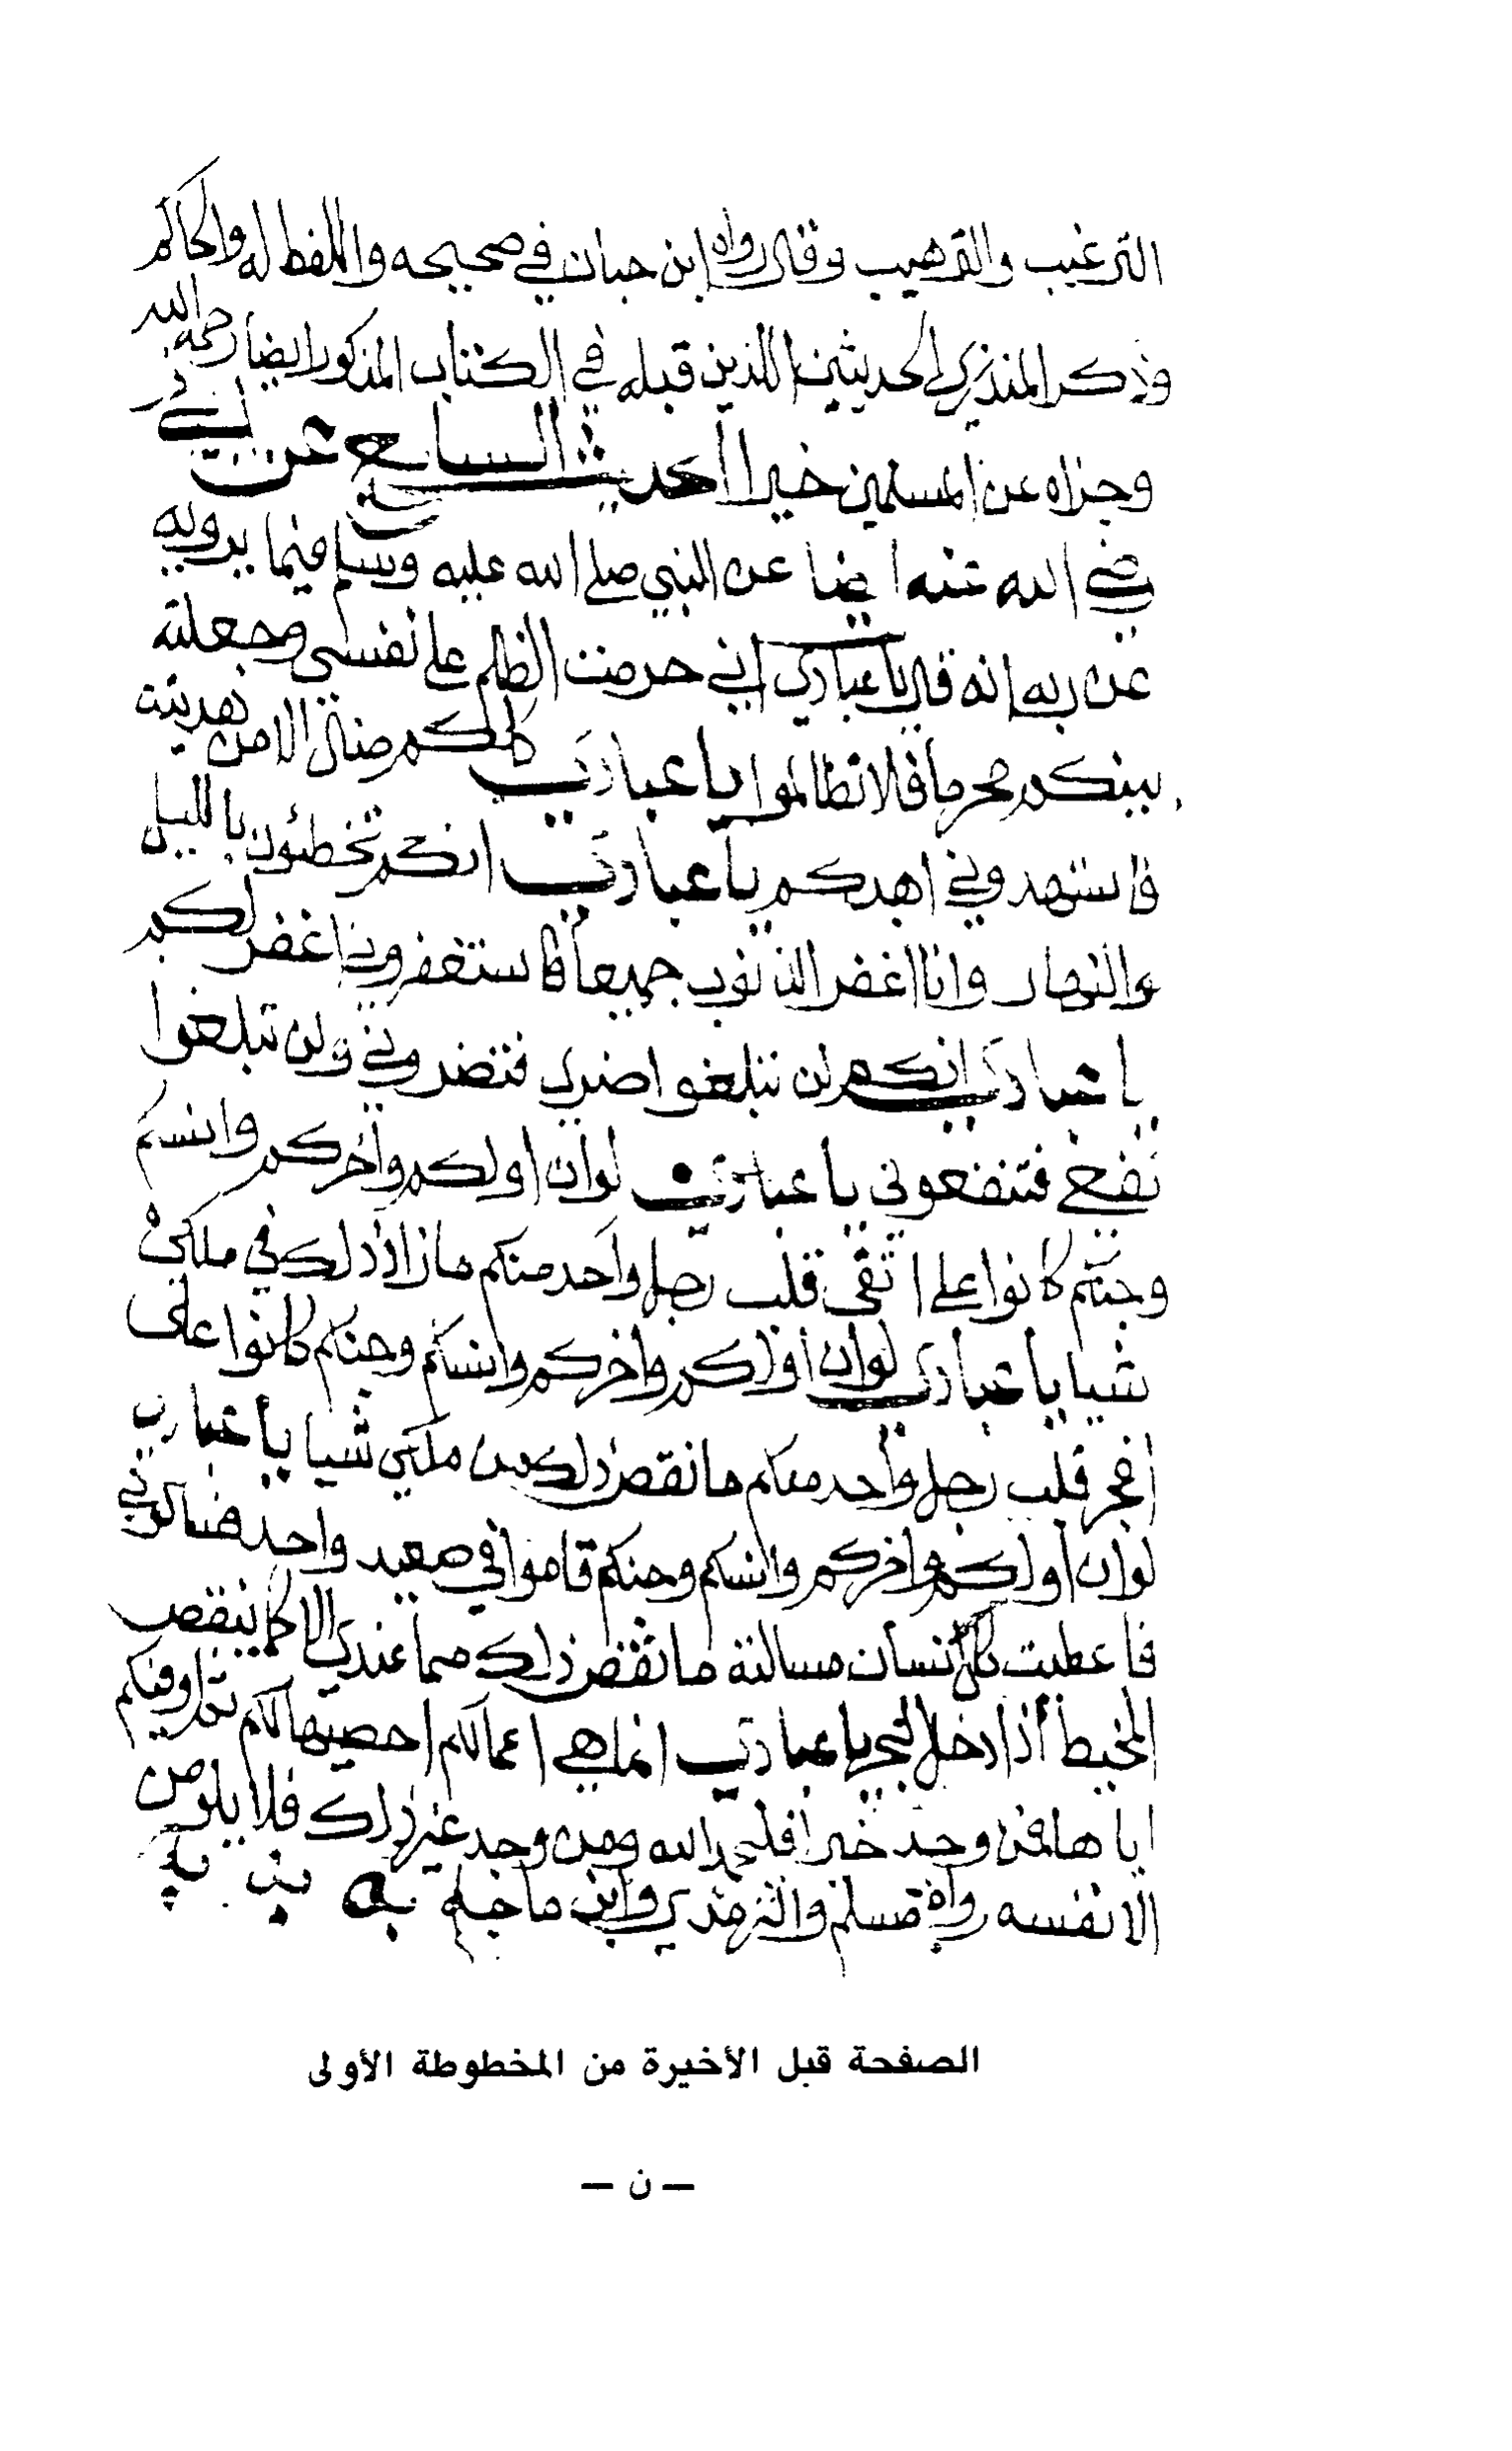 الترغيب والترهيب وقال رواه ابن حبان في صحيحه واللفظ له والحاكم
وذكر المنذري الحديثين اللذين قبله في الكتاب المذكور ايضا رحمه الله
وجزاه عن المسلمين خيرا الحديث السابع عن ابي ذر
رضي الله عنه ايضا عن النبي صلى الله عليه وسلم فيما يرويه
عن ربه انه قال يا عبادي اني حرمت الظلم على نفسي وجعلته
بينكم محرما فلا تظالموا يا عبادي كلكم ضال الا من هديته
فاستهدوني اهدكم يا عبادي انكم تخطئون بالليل
والنهار وانا اغفر الذنوب جميعا فاستغفروني اغفر لكم
يا عبادي انكم لن تبلغوا ضري فتضروني ولن تبلغوا
نفعي فتنفعوني يا عبادي لو ان اولكم وآخركم وانسكم
وجنكم كانوا على اتقى قلب رجل واحد منكم ما زاد ذلك في ملكي
شيا يا عبادي لو ان اولكم واخركم وانسكم وجنكم كانوا على
افجر قلب رجل واحد منكم ما نقص ذلك من ملكي شيا يا عبادي
لو ان اولكم واخركم وانسكم وجنكم قاموا في صعيد واحد فسالوني
فاعطيت كل انسان مسالته ما نقص ذلك مما عندي الا كما ينقص
المخيط اذا ادخل البحر يا عبادي انما هي اعمالكم احصيها لكم ثم اوفيكم
اياها فمن وجد خيرا فليحمد الله ومن وجد غير ذلك فلا يلومن
الا نفسه رواه مسلم والترمذي وابن ماجه
الصفحة قبل الأخيرة من المخطوطة الأولى
— ن —